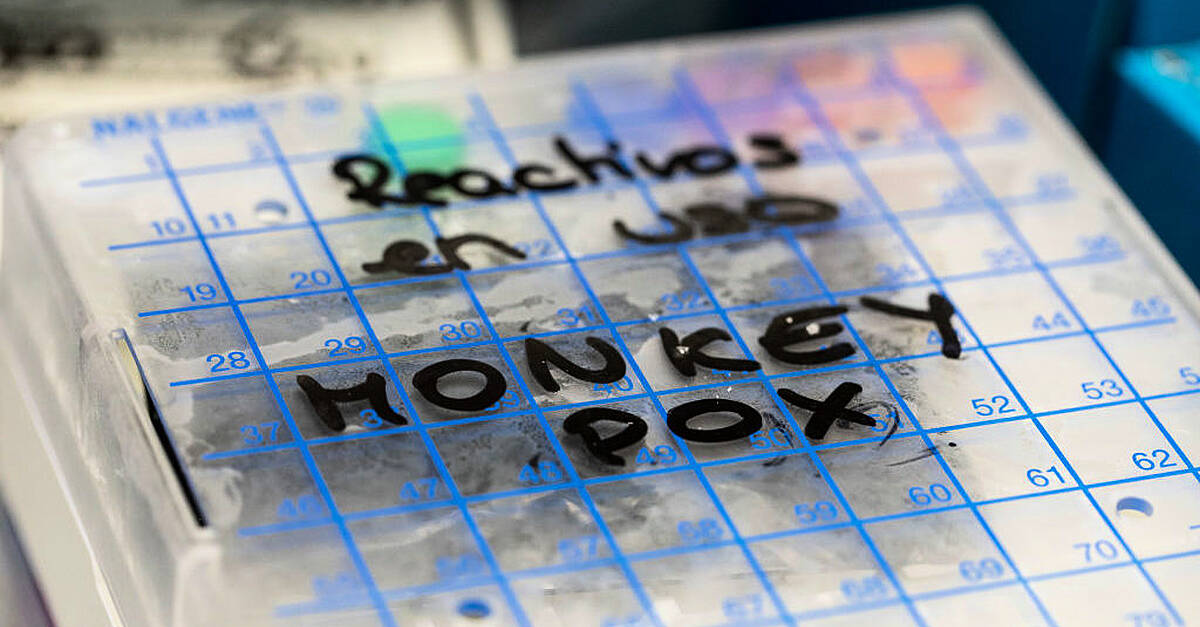 NALGENE
Reactivos
en USO
MONKEY
POX
10 11
19 20 22
28 29 30 31 32 33 34 35
37 40 44 45
46 47 48 49 50 52 53
57 58 59 60 61 62
67 68 69 70